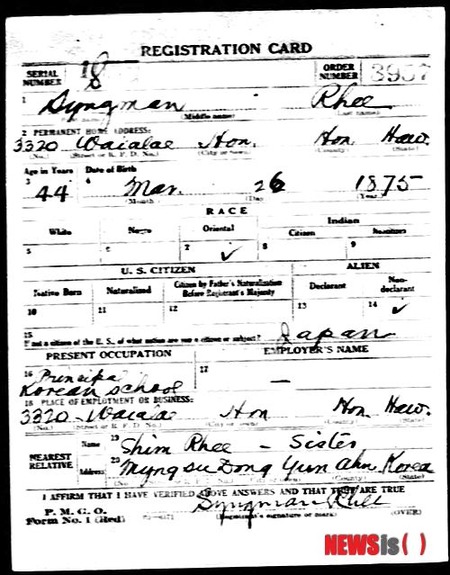 REGISTRATION CARD
SERIAL NUMBER 18 ORDER NUMBER 3957
1 Syngman Rhee
(Middle name) (Last name)
2 PERMANENT HOME ADDRESS:
3320 Waialae Hon. Hon. Haw.
(No.) (Street or R. F. D. No.) (City or town) (County) (State)
Age in Years Date of Birth
3 44 4 Mar. 26 1875
(Month) (Day) (Year)
RACE
White Negro Oriental Indian
Citizen
5 6 7 ✓ 8 9
U. S. CITIZEN ALIEN
Native Born Naturalized Citizen by Father's Naturalization Before Registrant's Majority Declarant Non-declarant
10 11 12 13 14 ✓
15
If not a citizen of the U. S., of what nation are you a citizen or subject? Japan
PRESENT OCCUPATION EMPLOYER'S NAME
16 Principal Korean School 17 —
18 PLACE OF EMPLOYMENT OR BUSINESS:
3320 Waialae Hon Hon. Haw.
(No.) (Street or R. F. D. No.) (City or town) (County) (State)
NEAREST RELATIVE Name 19 Shim Rhee – Sister
Address 20 Myng su Dong Yun ahn, Korea
I AFFIRM THAT I HAVE VERIFIED ABOVE ANSWERS AND THAT THEY ARE TRUE
P. M. G. O.
Form No. 1 (Red) Syngman Rhee
(Registrant's signature or mark) (OVER)
NEWSis( )